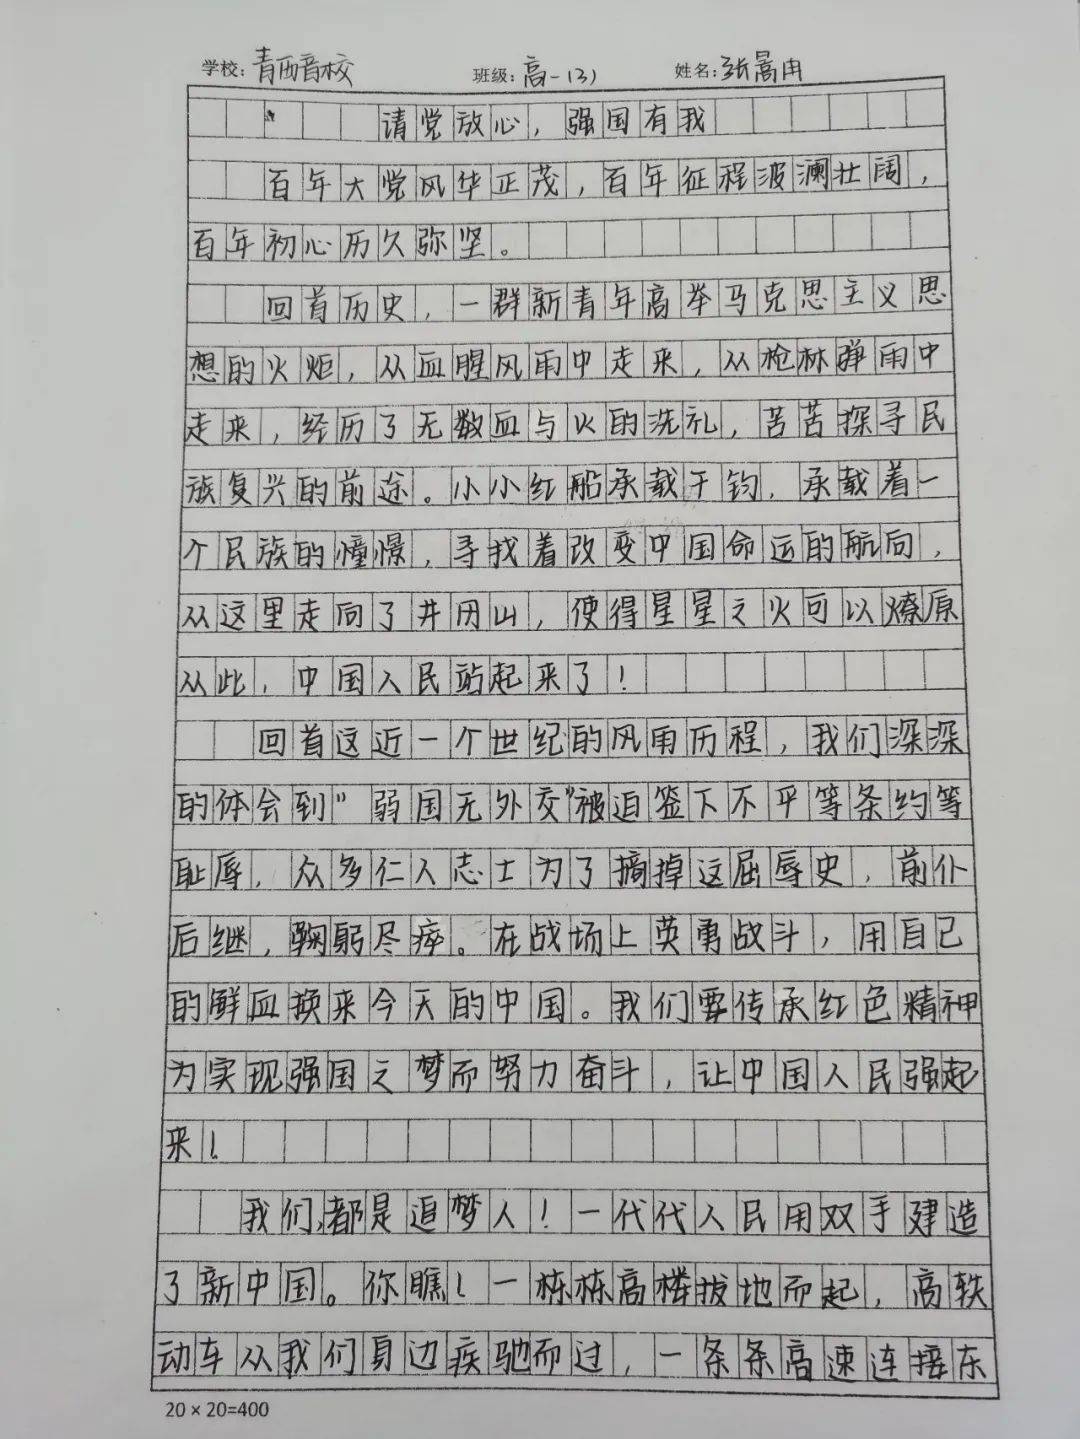 学校：青西音校 班级：高一（3） 姓名：张暠冉
请党放心，强国有我
百年大党风华正茂，百年征程波澜壮阔，
百年初心历久弥坚。
回首历史，一群新青年高举马克思主义思
想的火炬，从血腥风雨中走来，从枪林弹雨中
走来，经历了无数血与火的洗礼，苦苦探寻民
族复兴的前途。小小红船承载千钧，承载着一
个民族的憧憬，寻找着改变中国命运的航向，
从这里走向了井冈山，使得星星之火可以燎原
从此，中国人民站起来了！
回首这近一个世纪的风雨历程，我们深深
的体会到"弱国无外交"被迫签下不平等条约等
耻辱，众多仁人志士为了摘掉这屈辱史，前仆
后继，鞠躬尽瘁。在战场上英勇战斗，用自己
的鲜血换来今天的中国。我们要传承红色精神
为实现强国之梦而努力奋斗，让中国人民强起
来！
我们，都是追梦人！一代代人民用双手建造
了新中国。你瞧！一栋栋高楼拔地而起，高轶
动车从我们身边疾驰而过，一条条高速连接东
20×20=400